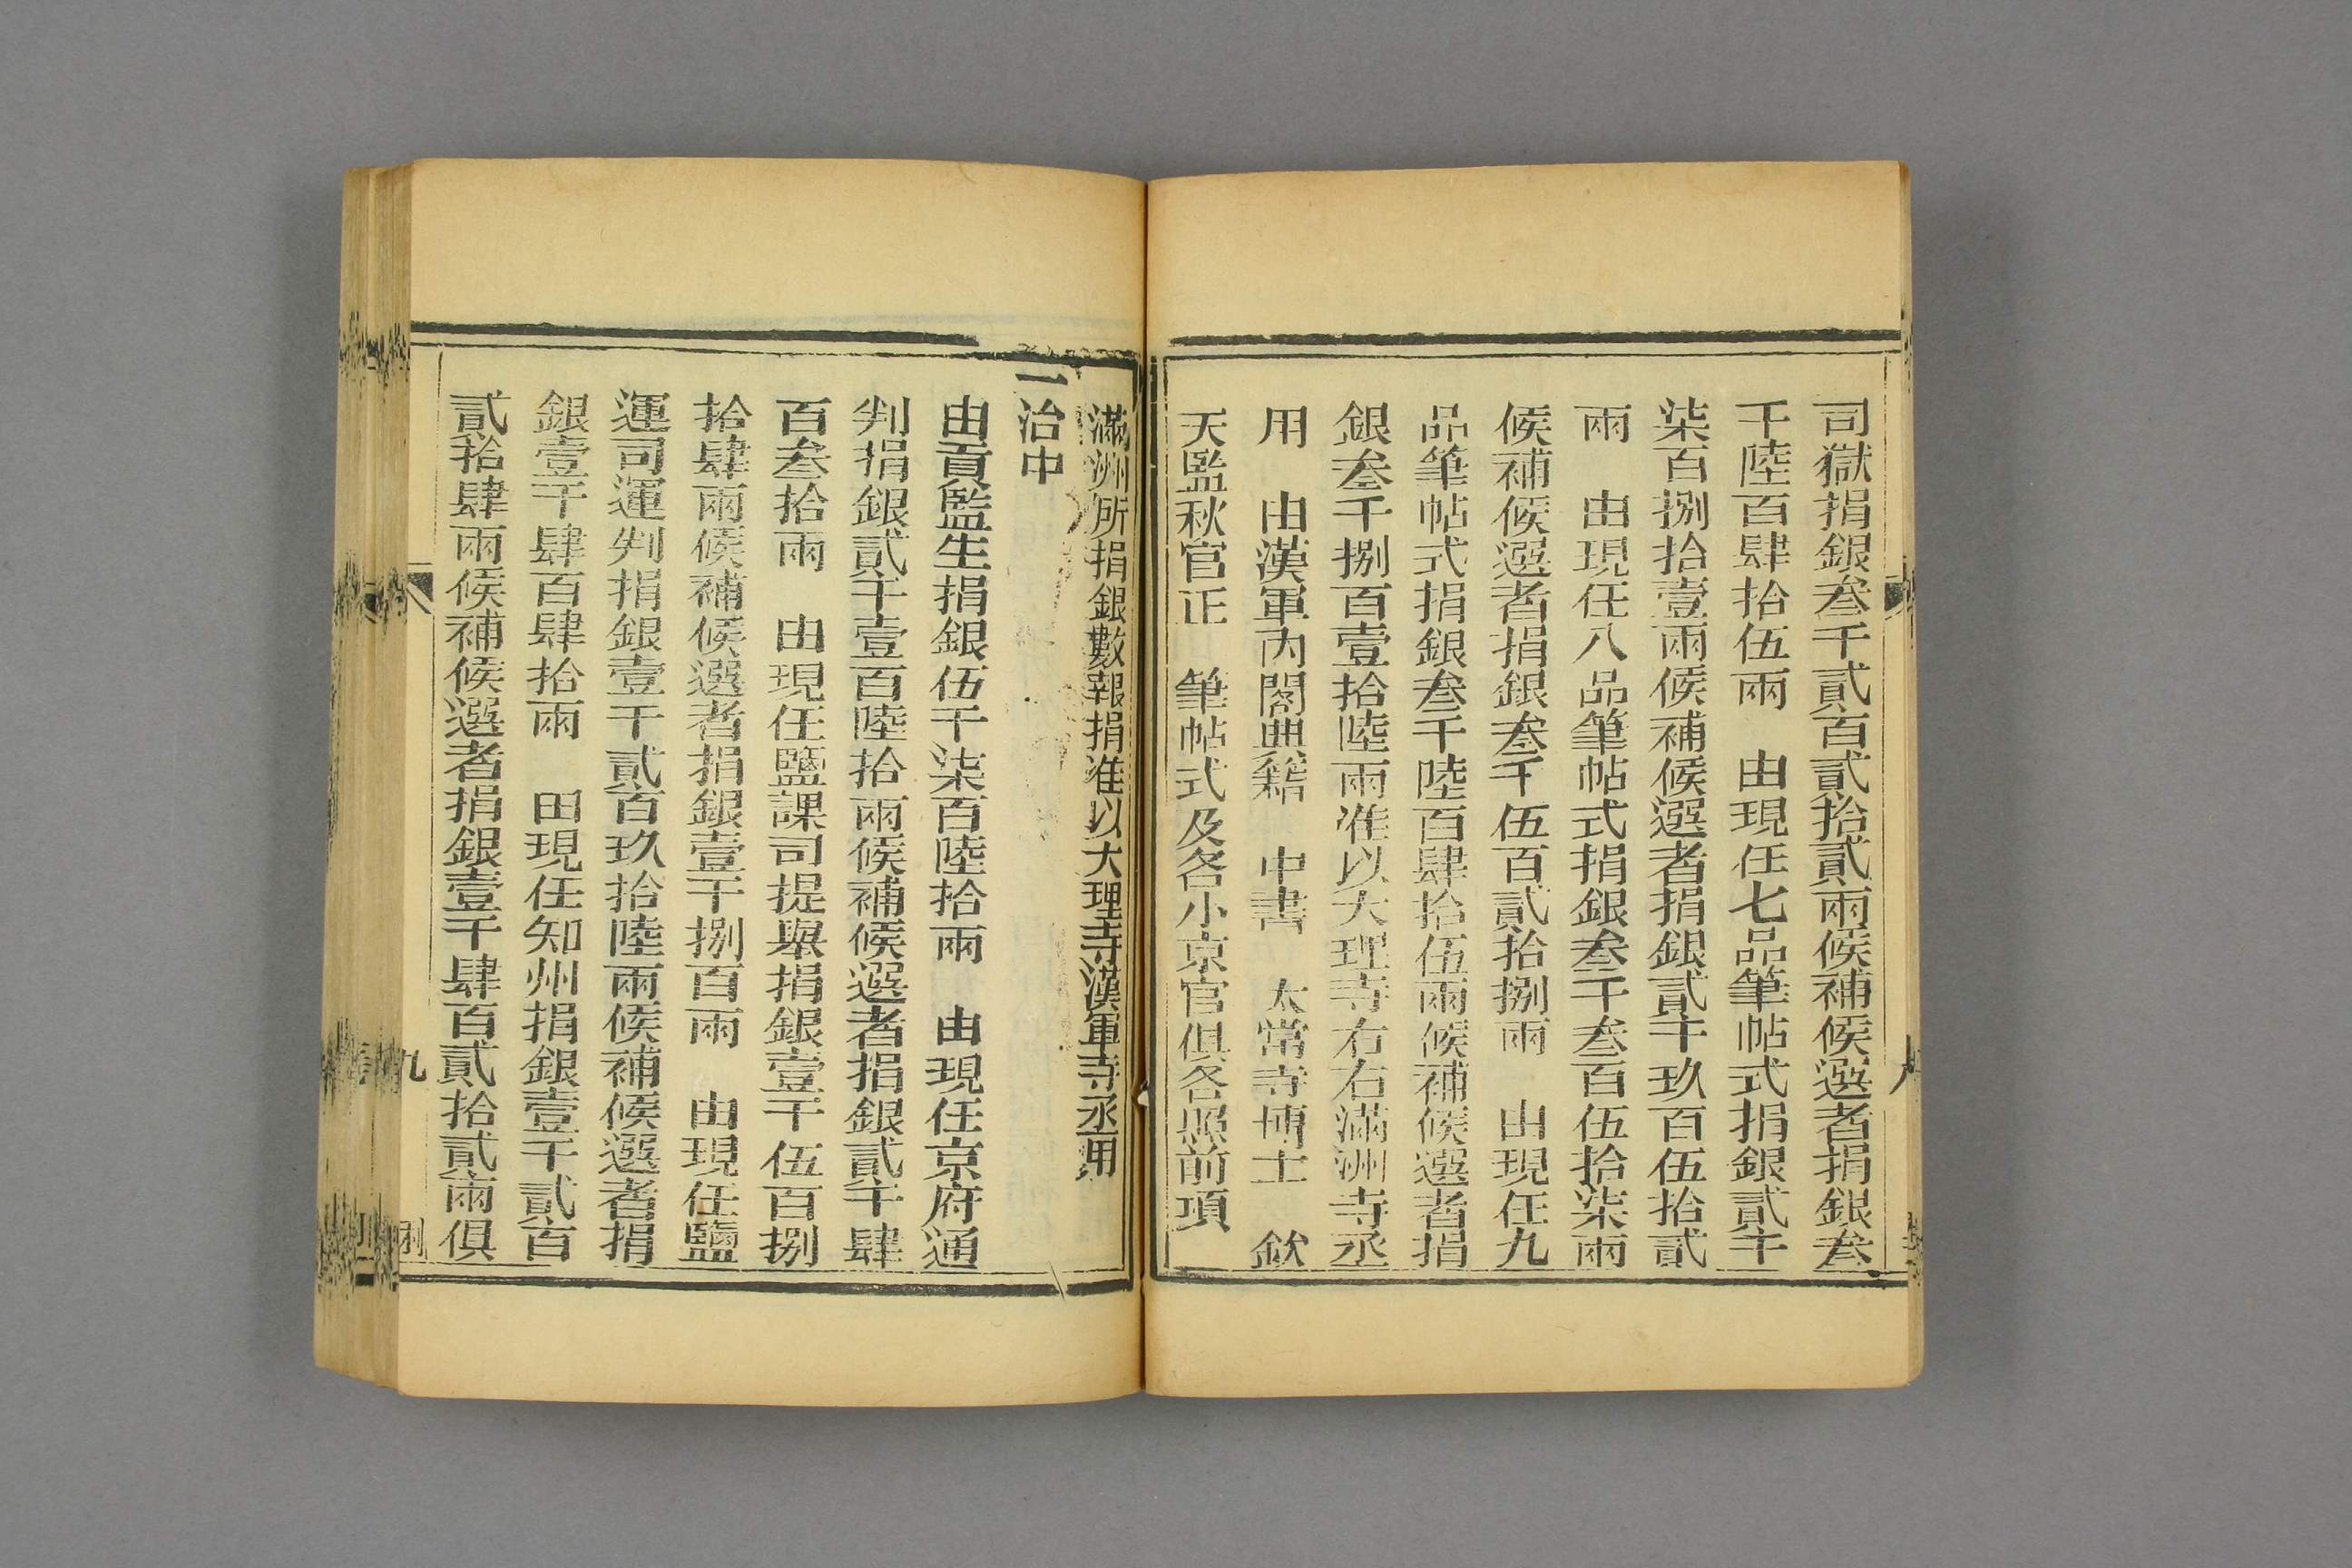 司獄捐銀叁千貳百貳拾貳兩候補候選者捐銀叁
千陸百肆拾伍兩　由現任七品筆帖式捐銀貳千
柒百捌拾壹兩候補候選者捐銀貳千玖百伍拾貳
兩　由現任八品筆帖式捐銀叁千叁百伍拾柒兩
候補候選者捐銀叁千伍百貳拾捌兩　由現任九
品筆帖式捐銀叁千陸百肆拾伍兩候補候選者捐
銀叁千捌百壹拾陸兩准以大理寺右右滿洲寺丞
用　由漢軍內閣典籍　中書　太常寺博士　欽
天監秋官正　筆帖式及各小京官俱各照前項
滿洲所捐銀數報捐准以大理寺漢軍寺丞用
一治中
由貢監生捐銀伍千柒百陸拾兩　由現任京府通
判捐銀貳千壹百陸拾兩候補候選者捐銀貳千肆
百叁拾兩　由現任鹽課司提舉捐銀壹千伍百捌
拾肆兩候補候選者捐銀壹千捌百兩　由現任鹽
運司運判捐銀壹千貳百玖拾陸兩候補候選者捐
銀壹千肆百肆拾兩　田現任知州捐銀壹千貳百
貳拾肆兩候補候選者捐銀壹千肆百貳拾貳兩俱
九